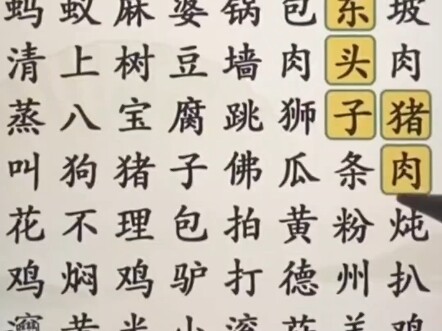 蚂蚁麻婆锅包东坡
清上树豆墙肉头肉
蒸八宝腐跳狮子猪
叫狗猪子佛瓜条肉
花不理包拍黄粉炖
鸡焖鸡驴打德州扒
黄米小滚花羊鸡